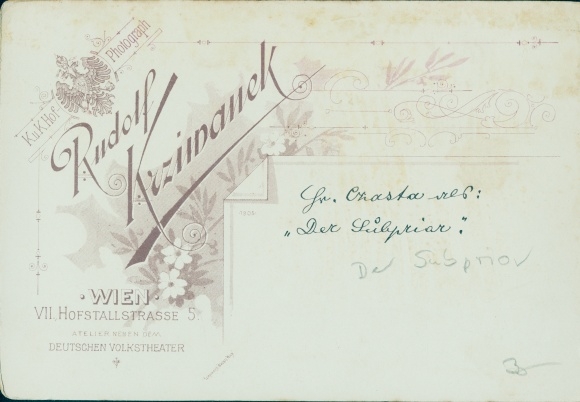 K.u.K. Hof-
Photograph
Rudolf
Krziwanek
Hr. Czasta als:
„Der Subprior".
Der Subprior
WIEN
VII, HOFSTALLSTRASSE 5.
ATELIER NEBEN DEM
DEUTSCHEN VOLKSTHEATER